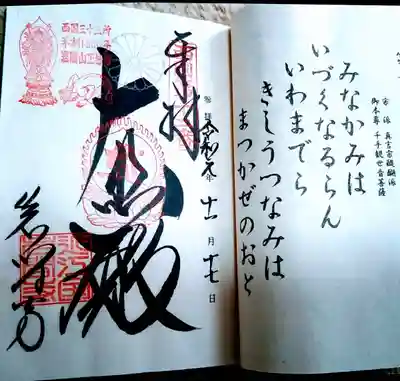 宗派 真言宗醍醐派
御本尊 千手観世音菩薩
みなかみは
いづくなるらん
いわまでら
きしうつなみは
まつかぜのおと
奉拝
令和元年十一月十七日
大悲殿
岩間寺
西国三十三所